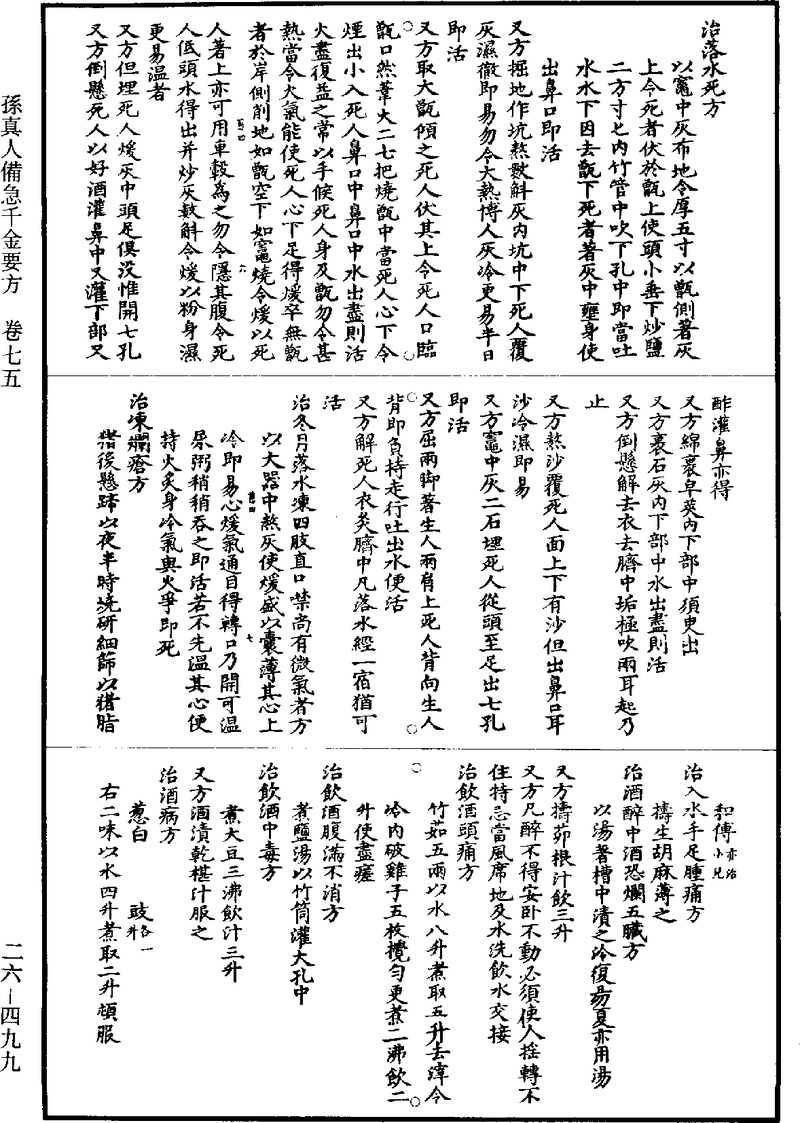 治落水死方
以竈中灰布地令厚五寸以甑側著灰
上令死者伏於甑上使頭小垂下炒鹽
二方寸匕內竹管中吹下孔中即當吐
水水下因去甑下死者著灰中壅身使
出鼻口即活
又方掘地作坑熬數斛灰內坑中下死人覆
灰濕徹即易勿令大熱博人灰冷更易半日
即活
又方取大甑傾之死人伏其上令死人口臨
甑口然葦火二七把燒甑中當死人心下令
煙出小入死人鼻口中鼻口中水出盡則活
火盡復益之常以手候死人身及甑勿令甚
熱當令火氣能使死人心下足得煖卒無甑
者於岸側削地如甑空下如竈燒令煖以死
人著上亦可用車轂為之勿令隱其腹令死
人低頭水得出并炒灰數斛令煖以粉身濕
更易溫者
又方但埋死人煖灰中頭足俱沒惟開七孔
又方倒懸死人以好酒灌鼻中又灌下部又
酢灌鼻亦得
又方綿裹皁莢內下部中須臾出
又方裹石灰內下部中水出盡則活
又方倒懸解去衣去臍中垢極吹兩耳起乃
止
又方熬沙覆死人面上下有沙但出鼻口耳
沙冷濕即易
又方竈中灰二石埋死人從頭至足出七孔
即活
又方屈兩腳著生人兩肩上死人背向生人
背即負持走行吐出水便活
又方解死人衣灸臍中凡落水經一宿猶可
活
治冬月落水凍四肢直口噤尚有微氣者方
以大器中熬灰使煖盛以囊薄其心上
冷即易心煖氣通目得轉口乃開可溫
尿粥稍稍吞之即活若不先溫其心便
持火炙身冷氣與火爭即死
治凍爛瘡方
猪後懸蹄以夜半時燒研細篩以猪脂
和傅亦治小兒
治入水手足腫痛方
擣生胡麻薄之
治酒醉中酒恐爛五臟方
以湯著槽中漬之冷復易夏亦用湯
又方擣茆根汁飲三升
又方凡醉不得安卧不動必須使人搖轉不
住特忌當風席地及水洗飲水交接
治飲酒頭痛方
竹茹五兩以水八升煮取五升去滓令
冷內破雞子五枚攪勻更煮二沸飲二
升使盡瘥
治飲酒腹滿不消方
煮鹽湯以竹筒灌大孔中
治飲酒中毒方
煮大豆三沸飲汁三升
又方酒漬乾椹汁服之
治酒病方
葱白 豉各一升
右二味以水四升煮取二升頓服
孫真人備急千金要方 卷七五
二六－四九九